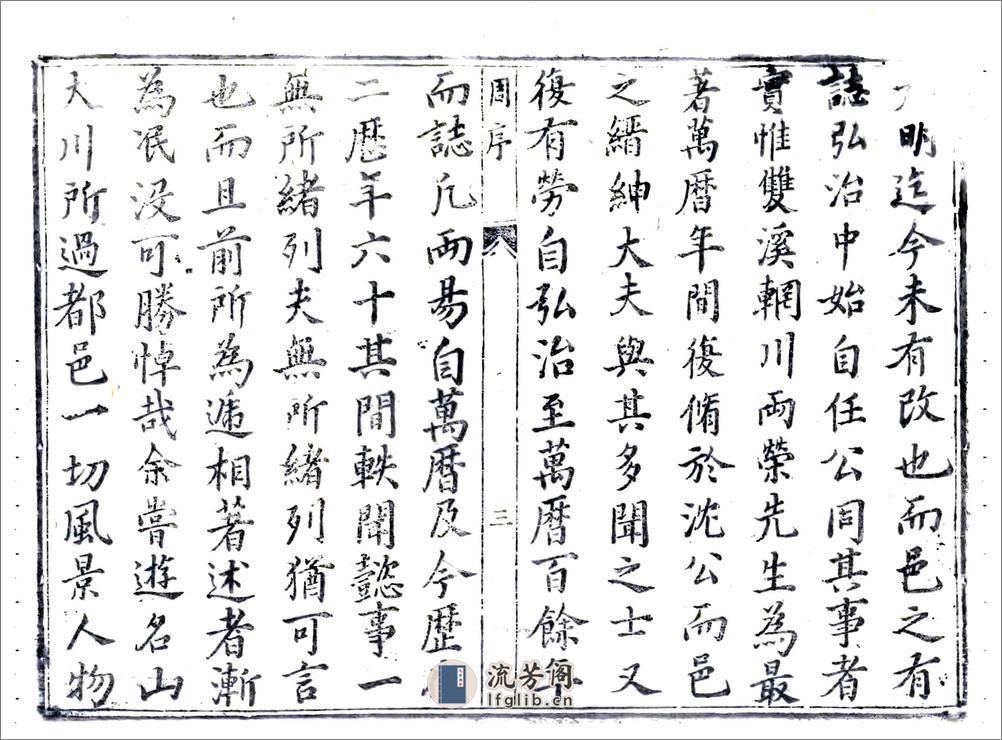 明迄今未有改也而邑之有
誌弘治中始自任公同其事者
實惟雙溪輞川兩榮先生為最
著萬曆年間復脩於沈公而邑
之縉紳大夫與其多聞之士又
復有勞自弘治至萬曆百餘年
周序
三
而誌凡兩易自萬曆及今歷
二歷年六十其間軼聞懿事一
無所緒列夫無所緒列猶可言
也而且前所為遞相著述者漸
為泯没可勝悼哉余嘗遊名山
大川所過都邑一切風景人物
流芳阁
lfglib.cn